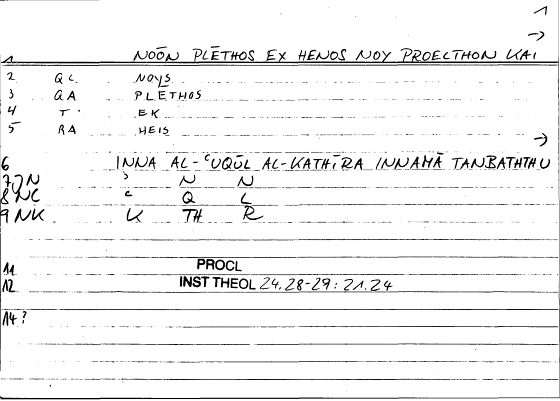 1
→
1 NOŌN PLĒTHOS EX HENOS NOY PROELTHON KAI
2 QL NOYS
3 QA PLĒTHOS
4 T EK
5 RA HEIS
→
6 INNA AL-ʿUQŪL AL-KATHĪRA INNAMĀ TANBATHTHU
7 JN ʾ N N
8 NC ʿ Q L
9 NK K TH R
11 PROCL
12 INST THEOL 24,28-29: 21.24
14?